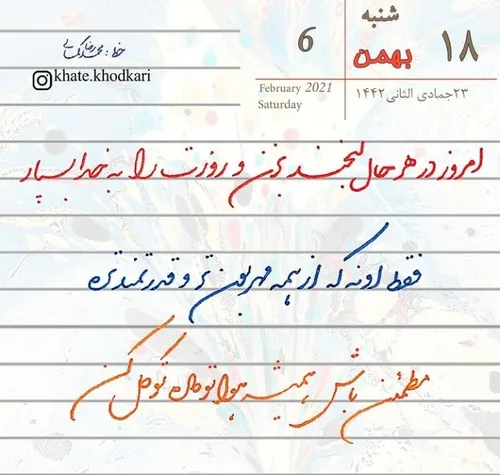 شنبه
۱۸ بهمن
6
۲۳جمادی الثانی۱۴۴۲
February 2021
Saturday
خط :
khate.khodkari
امروز در هر حال لبخند بزن و روزت را به خدا بسپار
فقط اونه که از همه مهربون تر و قدرتمندتره
مطمئن باش همیشه هواتو داره توکل کن